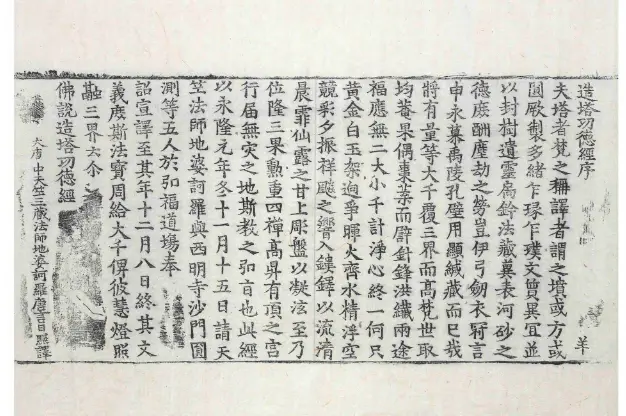 造塔功德經序 羊
夫塔者梵之稱譯者謂之墳或方或
圓厥製多緒乍琢乍璞文質異冝並
以封樹遺靈扃鈐法藏冀表河沙之
德庶酬塵劫之勞豈伊弓劒衣冠言
申永慕禹陵孔壁用顯緘藏而已哉
將有量等大千覆三界而高梵世取
均菴果偶棗葉而礕針鋒洪纖兩途
福應無二大小千計淨心終一何只
黃金白玉架逈爭暉火齊水精浮空
競彩夕振祥飈之響入鏤鐸以流清
晨霏仙露之甘上彫盤以凝泫至乃
位隆三果勲重四禪高昇有頂之宮
行届無灾之地斯教之弘旨也此經
以永隆元年冬十一月十五日請天
笁法師地婆訶羅與西明寺沙門圓
測等五人於弘福道場奉
詔宣譯至其年十二月八日終其文
義庶斯法寶周給大千俾彼慧燈照
融三界云尒
佛說造塔功德經
大唐中天竺三藏法師地婆訶羅唐言日 譯